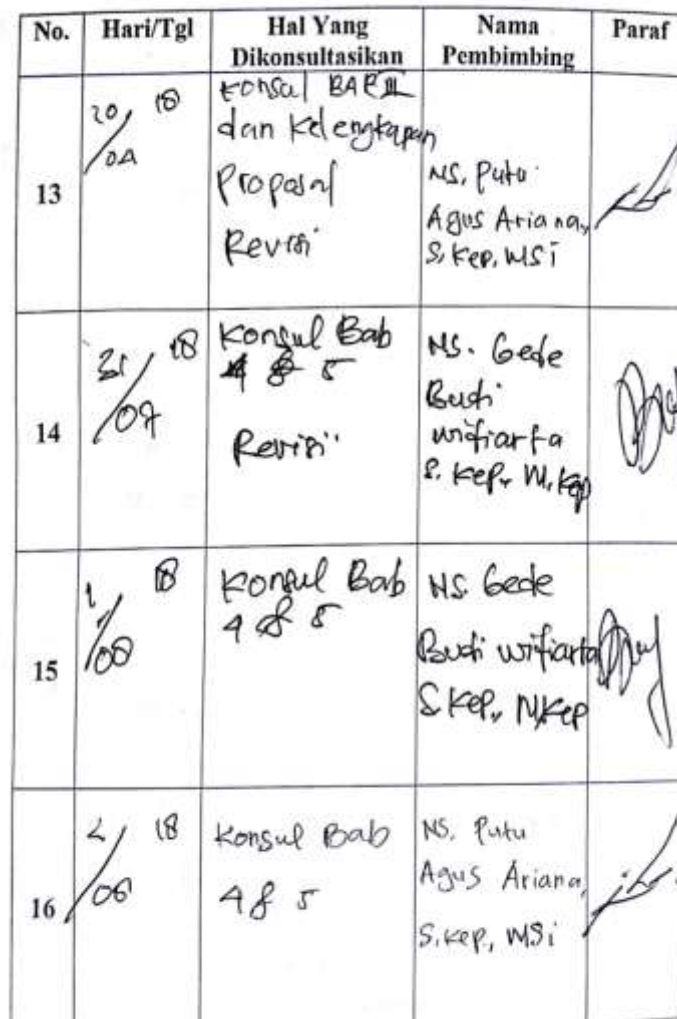 No. Hari/Tgl Hal Yang Dikonsultasikan Nama Pembimbing Paraf
13
20/04 18
Konsul BAB III
dan Kelengkapan
Proposal
Revisi
NS. Putu
Agus Ariana,
S.Kep, MSi
14
31/07 18
Konsul Bab
4 & 5
Revisi
NS. Gede
Budi
Widiarta
S.Kep., M.Kep
15
1/08 18
Konsul Bab
4 & 5
NS. Gede
Budi Widiarta
S.Kep., M.Kep
16
2/08 18
Konsul Bab
4 & 5
NS. Putu
Agus Ariana,
S.Kep., MSi